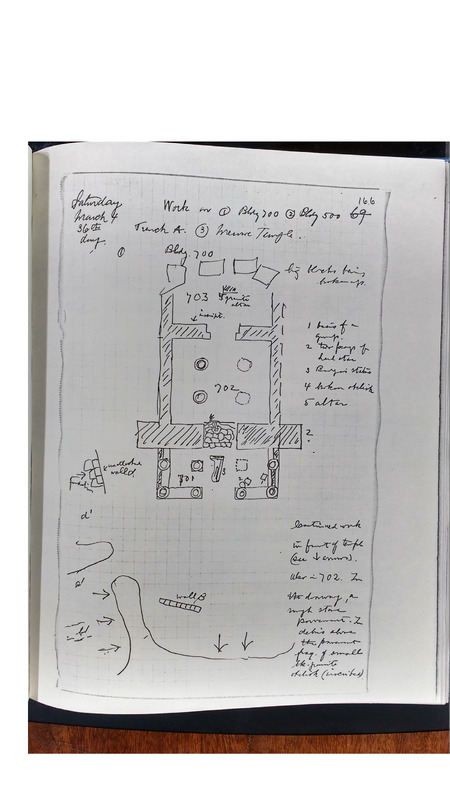 166
Saturday
March 4
36th
day.
Work on ① Bldg 700 ② Bldg 500 69
Trench A. ③ Meroe Temple.
①
Bldg. 700
big blocks being
broken up.
703
granite
altar
inscript.
1 basis of a
group.
2 two frags of
hard stone
3 Benzin statue
4 broken obelisk
5 altar
702
2
701
3
wall
d'
a'
b'
wall B
Continued work
in front of temple
(see ↓ arrows).
Also in 702. In
the doorway, a
rough stone
pavement. In
debris above
the pavement
frag. of small
blk. granite
obelisk (inscribed)